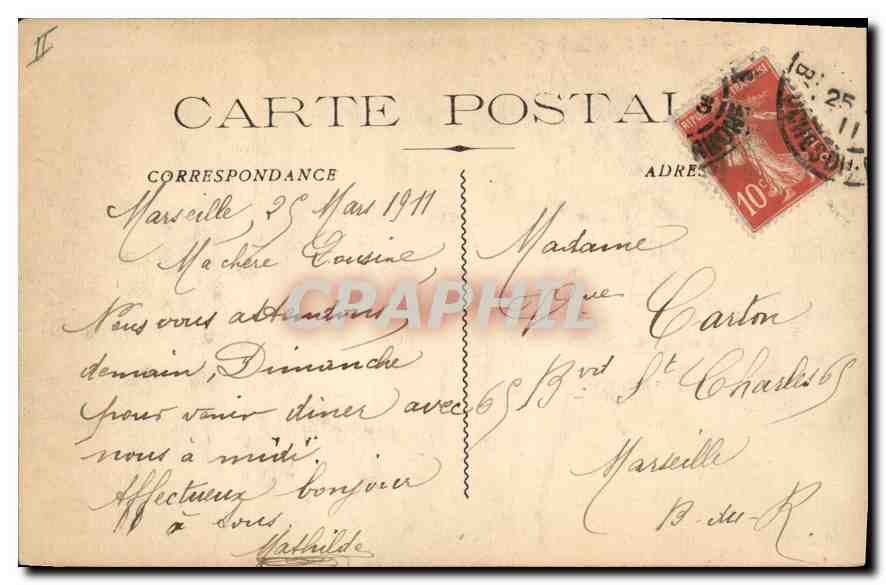 II
CARTE POSTAL
CORRESPONDANCE
Marseille, 25 Mars 1911
Ma chère Cousine,
Nous vous attendons,
demain, Dimanche
pour venir diner avec
nous à midi.
Affectueux bonjour
à tous
Mathilde
ADRES
Madame
Vve Carton
65 Bvd St Charles 65
Marseille
B-du-R.
10c
25
11
CPAPHIL